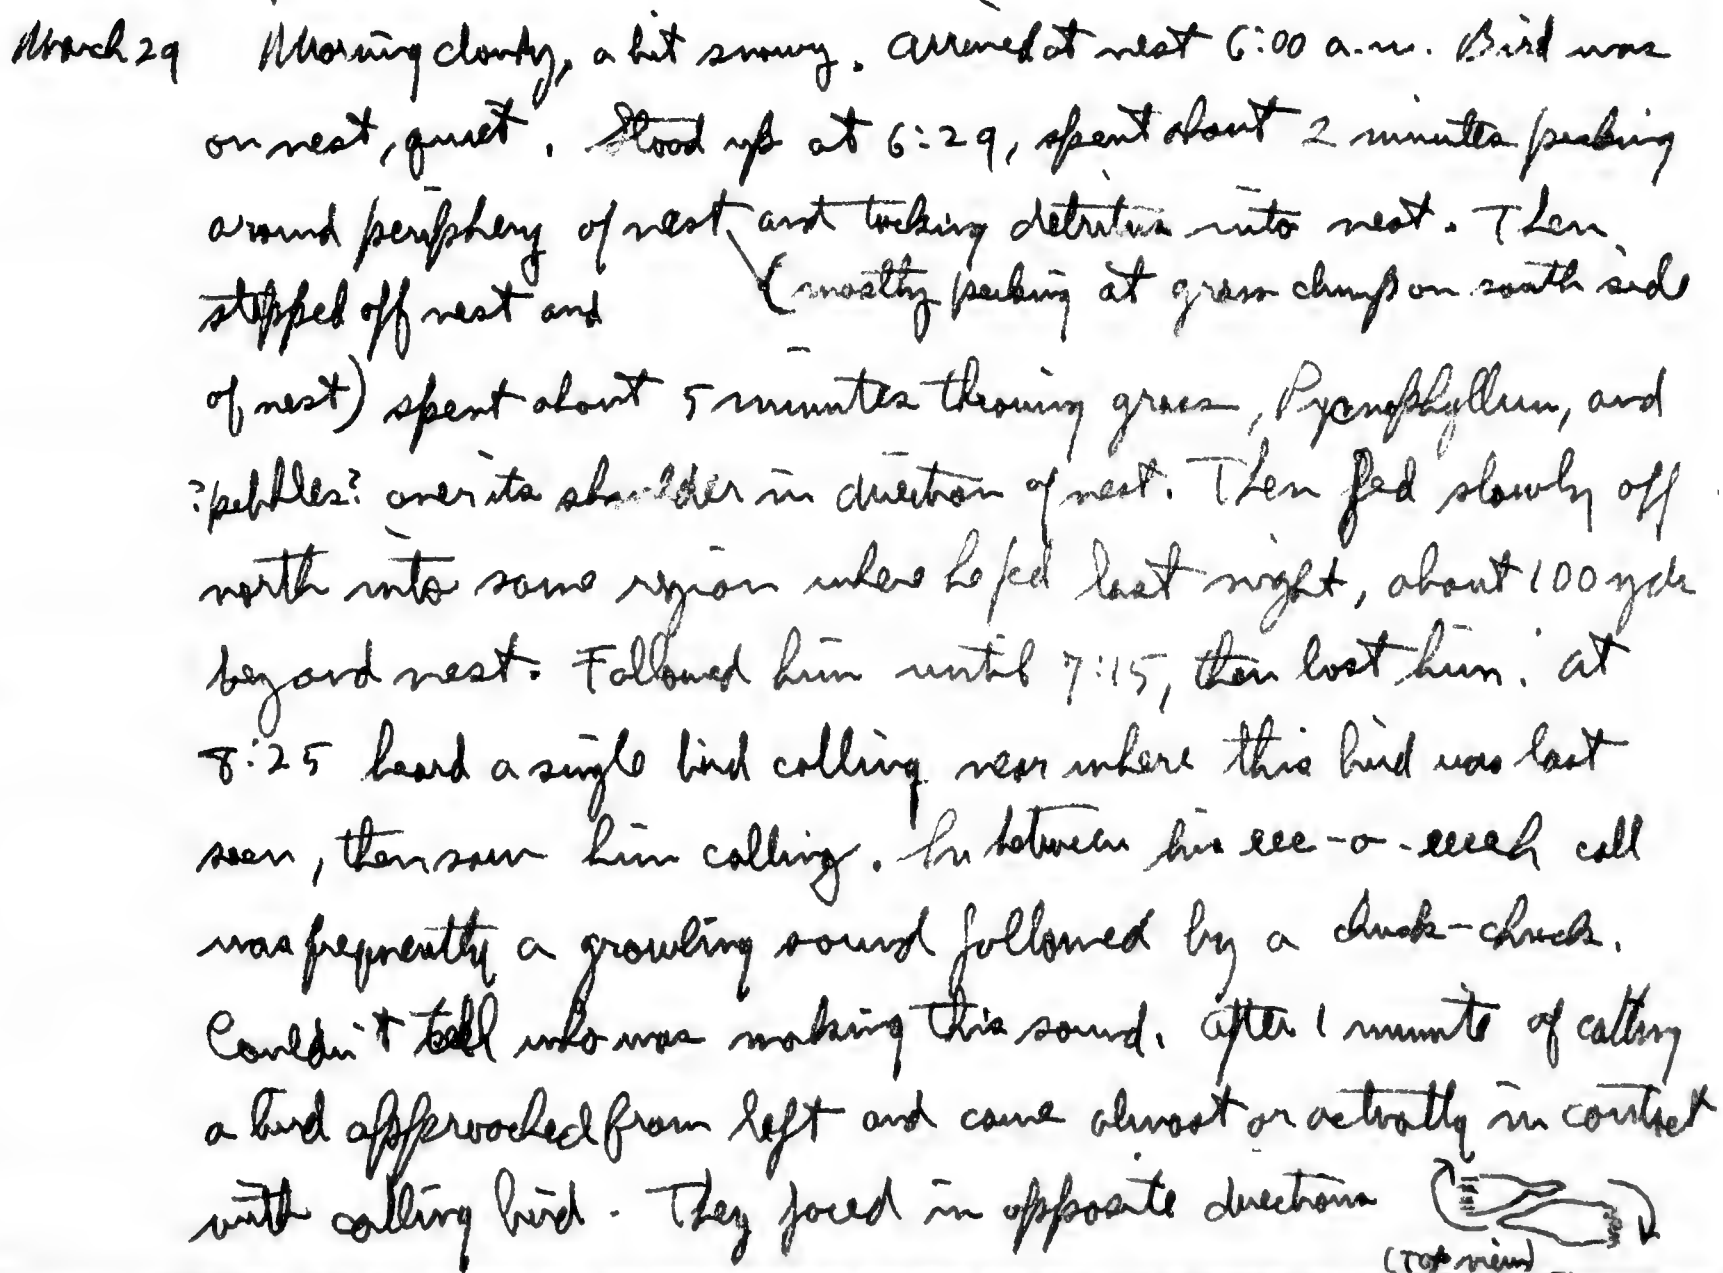 March 29 Morning cloudy, a bit snowy. Arrived at nest 6:00 a.m. Bird was
on nest, quiet. Stood up at 6:29, spent about 2 minutes pecking
around periphery of nest and tucking detritus into nest. Then
stepped off nest and (mostly pecking at grass clump on south side
of nest) spent about 5 minutes throwing grass, Pycnophyllum, and
?pebbles? over its shoulder in direction of nest. Then fed slowly off
north into same region where he fed last night, about 100 yds
beyond nest. Followed him until 7:15, then lost him. At
8:25 heard a single bird calling near where this bird was last
seen, then saw him calling. In between his eee-o-eeeh call
was frequently a growling sound followed by a chuck-chuck.
Couldn't tell who was making this sound. After 1 minute of calling
a bird approached from left and came almost or actually in contact
with calling bird. They faced in opposite directions
(Top view)